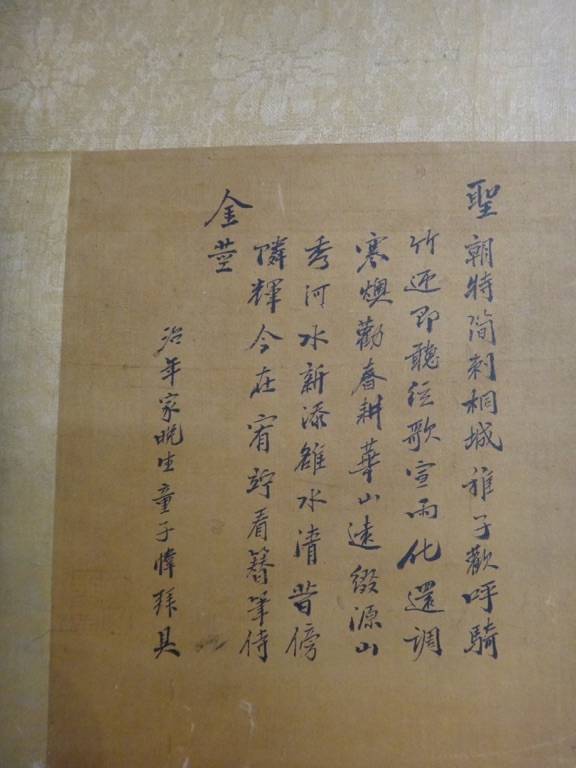 聖朝特簡刺桐城稚子歡呼騎
竹迎即聽絃歌宣雨化還調
寒燠勸春耕華山遠綴源山
秀河水新添雒水清昔傍
隣輝今在宥竚看簪筆侍
金莖
治年家晚生童子煒拜具